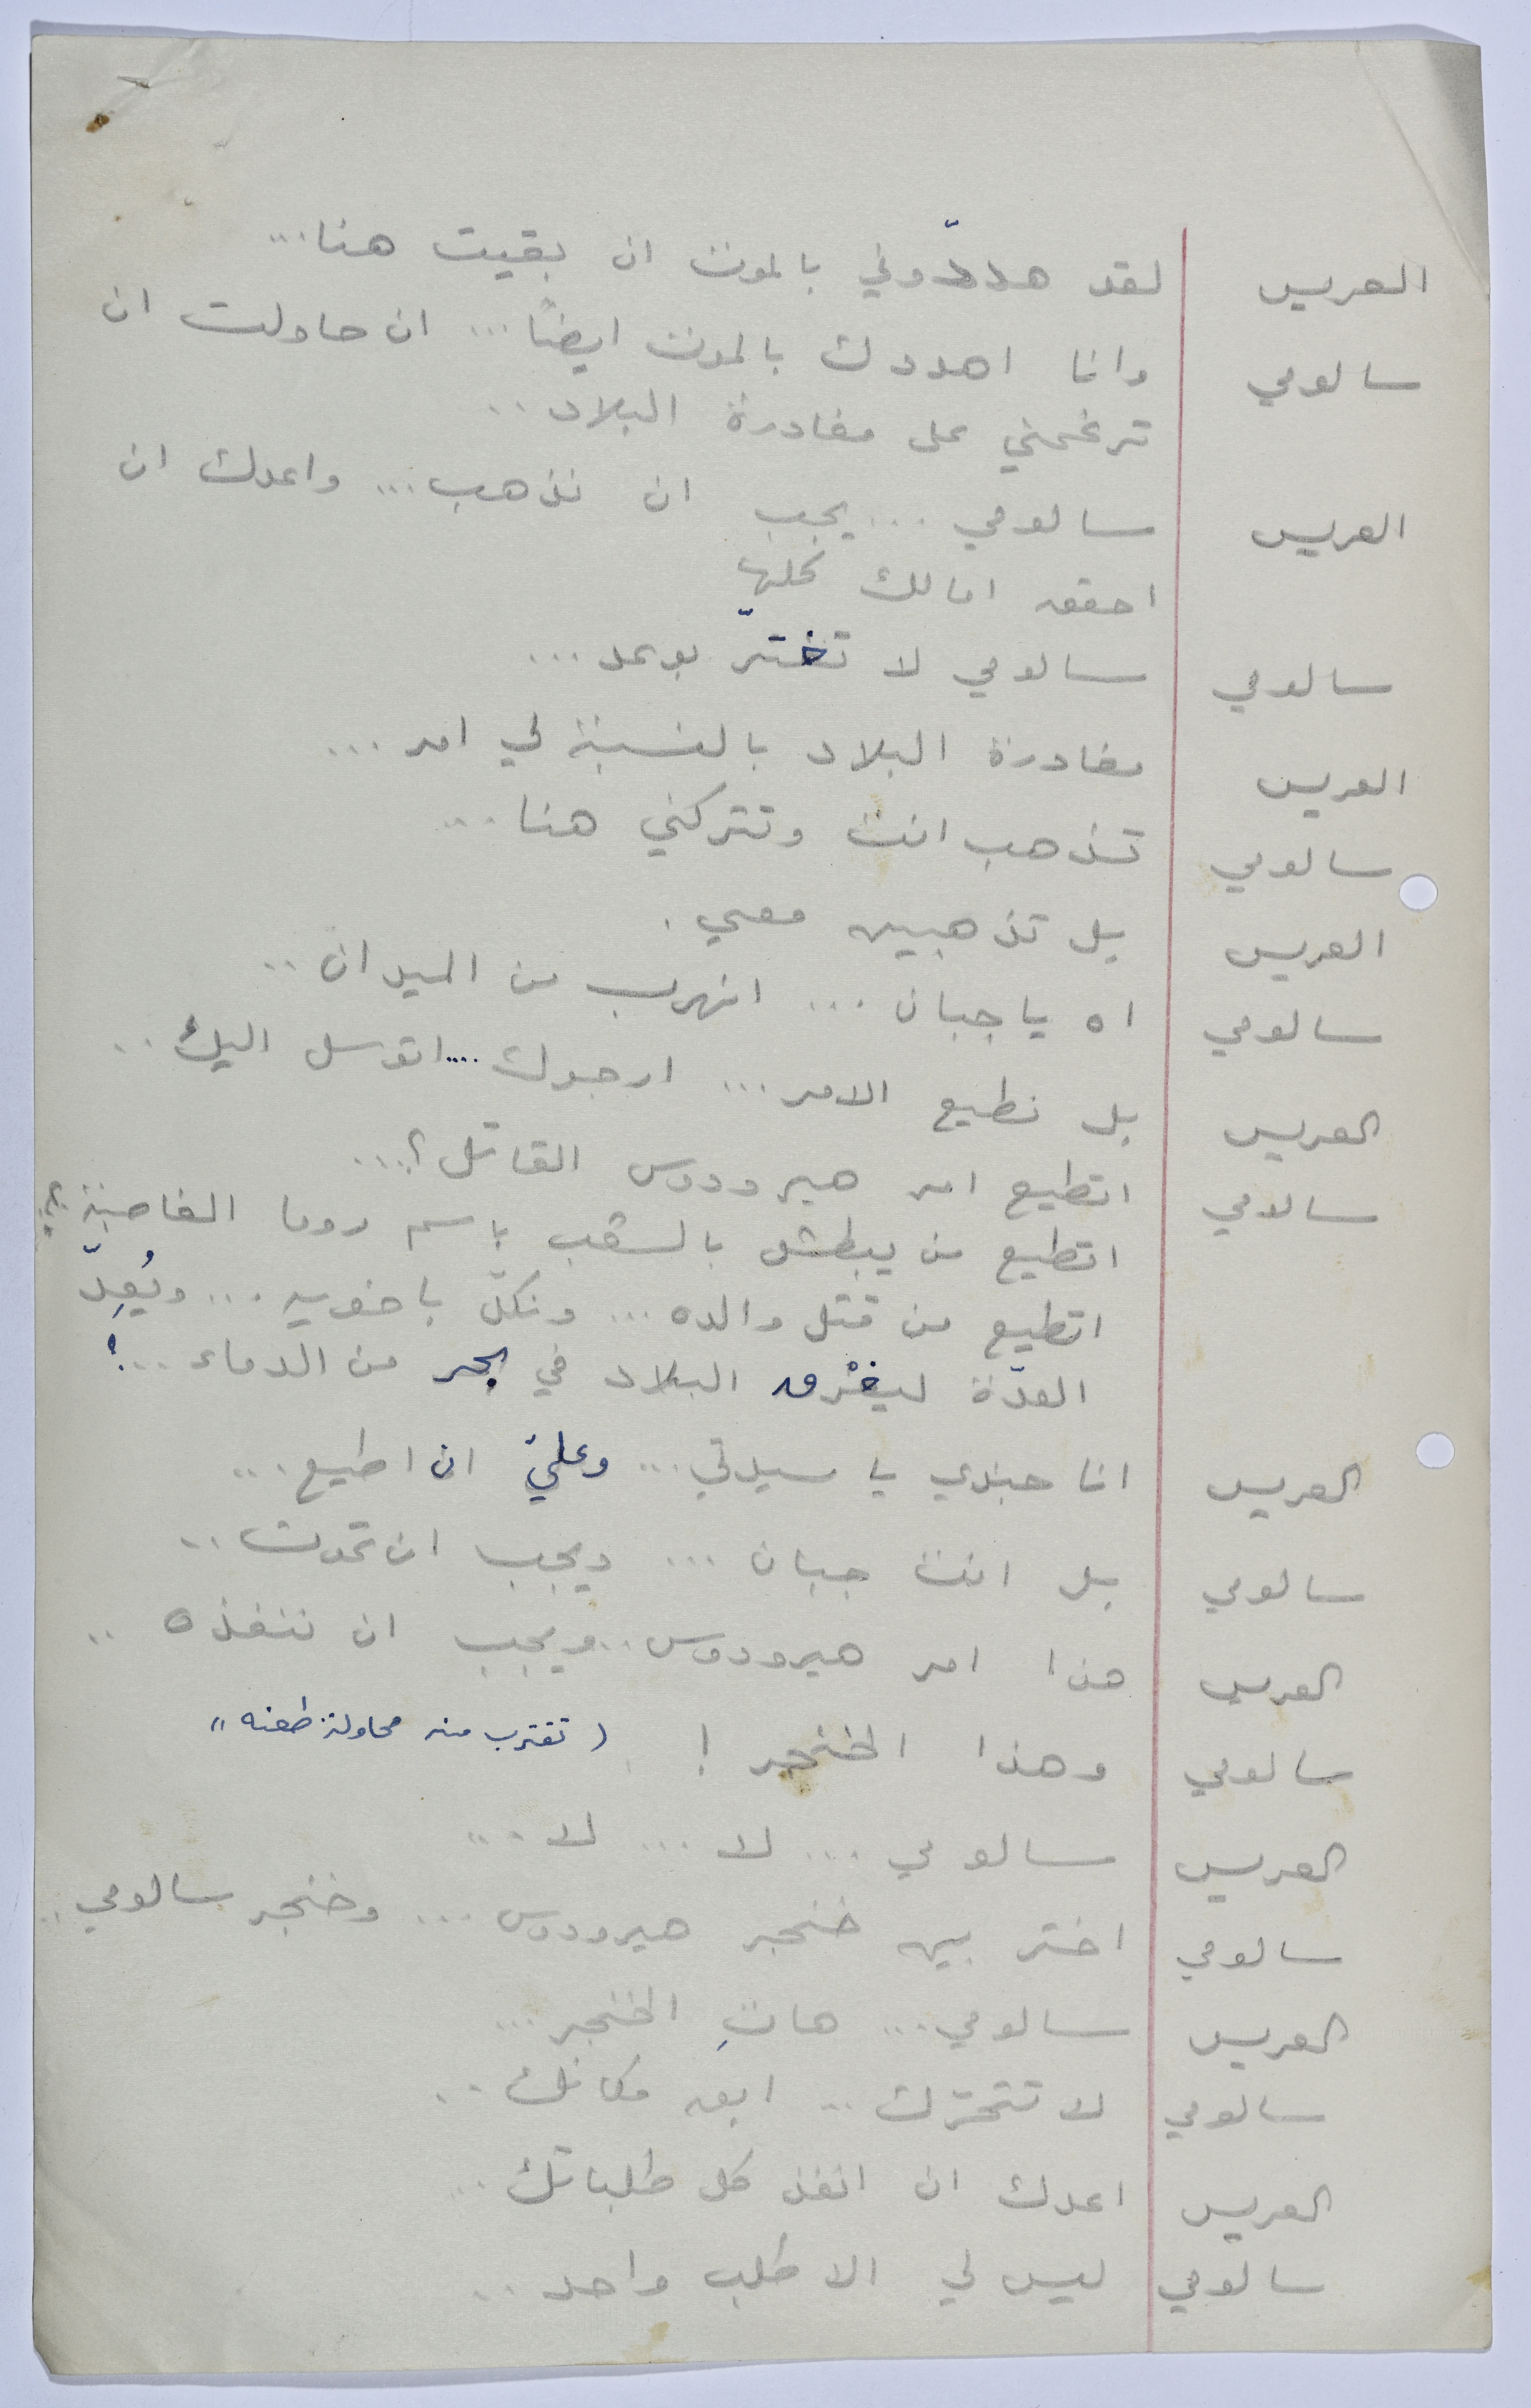 العريس لقد هددّوني بالموت ان بقيت هنا...
سالومي وانا اهددك بالموت ايضاً... ان حاولت ان
ترغمني على مغادرة البلاد..
العريس سالومي ... يجب ان نذهب... واعدك ان
احقق امالك كلها
سالومي سالومي لا تغترّ بوعد...
العريس مغادرة البلاد بالنسبة لي امر...
سالومي تذهب انت وتتركني هنا...
العريس بل تذهبين معي.
سالومي اه يا جبان... اتهرب من الميدان..
العريس بل نطيع الامر... ارجوك.... اتوسل اليك..
سالومي اتطيع امر هيرودوس القاتل؟...
اتطيع من يبطش بالشعب باسم روما الغاصبة؟
اتطيع من قتل والده... ونكلّ باخويه... ويُعِدّ
العدّة ليغْرق البلاد في بحر من الدماء...!
العريس انا جندي يا سيدتي... وعليّ ان اطيع...
سالومي بل انت جبان... ويجب ان تموت..
العريس هذا امر هيرودوس.. ويجب ان ننفذه..
سالومي وهذا الخنجر! (تقترب منه محاولة طعنه)
العريس سالومي... لا... لا...
سالومي اختر بين خنجر هيرودوس... وخنجر سالومي..
العريس سالومي... هاتِ الخنجر...
سالومي لا تتحرّك.. ابق مكانك..
العريس اعدك ان انفذ كل طلباتك...
سالومي ليس لي الا طلب واحد..